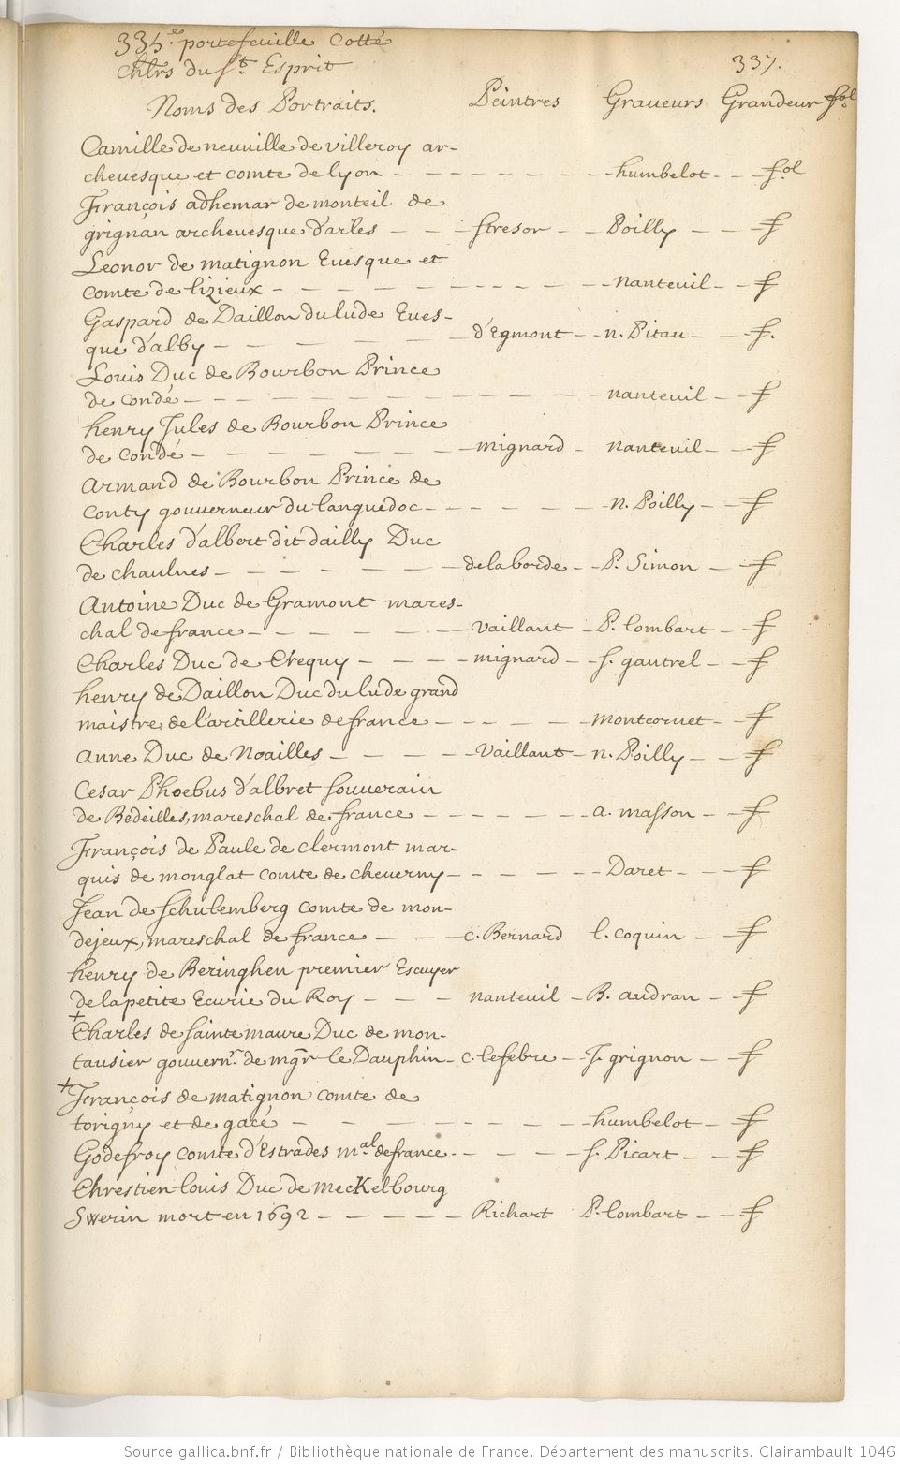 335.e portefeuille Cotté
Chlrs du St. Esprit
337.
Noms des Portraits. Peintres Graueurs Grandeur fol
Camille de neuuille de villeroy ar-
cheuesque et comte de lyon - - - - - - - humbelot - - fol
François adhemar de monteil de
grignan archeuesque d'arles - - - stresor - - Poilly - - f
Leonor de matignon Euesque et
comte de lizieux - - - - - - - - - - nanteuil - - f
Gaspard de Daillon du lude Eues-
que d'alby - - - - - - d'Egmont - n. Pitau - - f.
Louis Duc de Bourbon Prince
de condé - - - - - - - - - - nanteuil - - f
henry Jules de Bourbon Prince
de condé - - - - - - - mignard - nanteuil - - f
armand de Bourbon Prince de
conty gouuerneur du languedoc - - - - - n. Poilly - - f
Charles d'albert dit dailly Duc
de chaulnes - - - - - - - delaborde - - P. Simon - - f
Antoine Duc de Gramont mares-
chal de france - - - - - - vaillant - P. lombart - - f
Charles Duc de Crequy - - - - mignard - f. gantrel - - f
henry de Daillon Duc du lude grand
maistre de l'artillerie de france - - - - - montcornet - - f
anne Duc de Noailles - - - - - Vaillant - n. Poilly - - f
Cesar Phoebus d'albret souuerain
de Bedeilles, mareschal de france - - - - - - - a. masson - - f
François de Paule de clermont mar-
quis de monglat comte de cheuerny - - - - - - Daret - - f
Jean de schulemberg comte de mon-
dejeux, mareschal de france - - c. Bernard l. coquin - - f
henry de Beringhen premier Escuyer
de la petite Ecurie du Roy - - - nanteuil - B. audran - - f
+
Charles de sainte maure Duc de mon-
tausier gouuernr. de mgr le Dauphin - c. lefebre - - J. grignon - - f
+ François de matignon comte de
torigny et de gacé - - - - - - - - humbelot - - f
Godefroy comte d'Estrades mal. de france - - - - - f. Picart - - f
Chrestien louis Duc de mecKelbourg
Swerin mort en 1692 - - - - - Richart P. lombart - - f
Source gallica.bnf.fr / Bibliothèque nationale de France. Département des manuscrits. Clairambault 1046